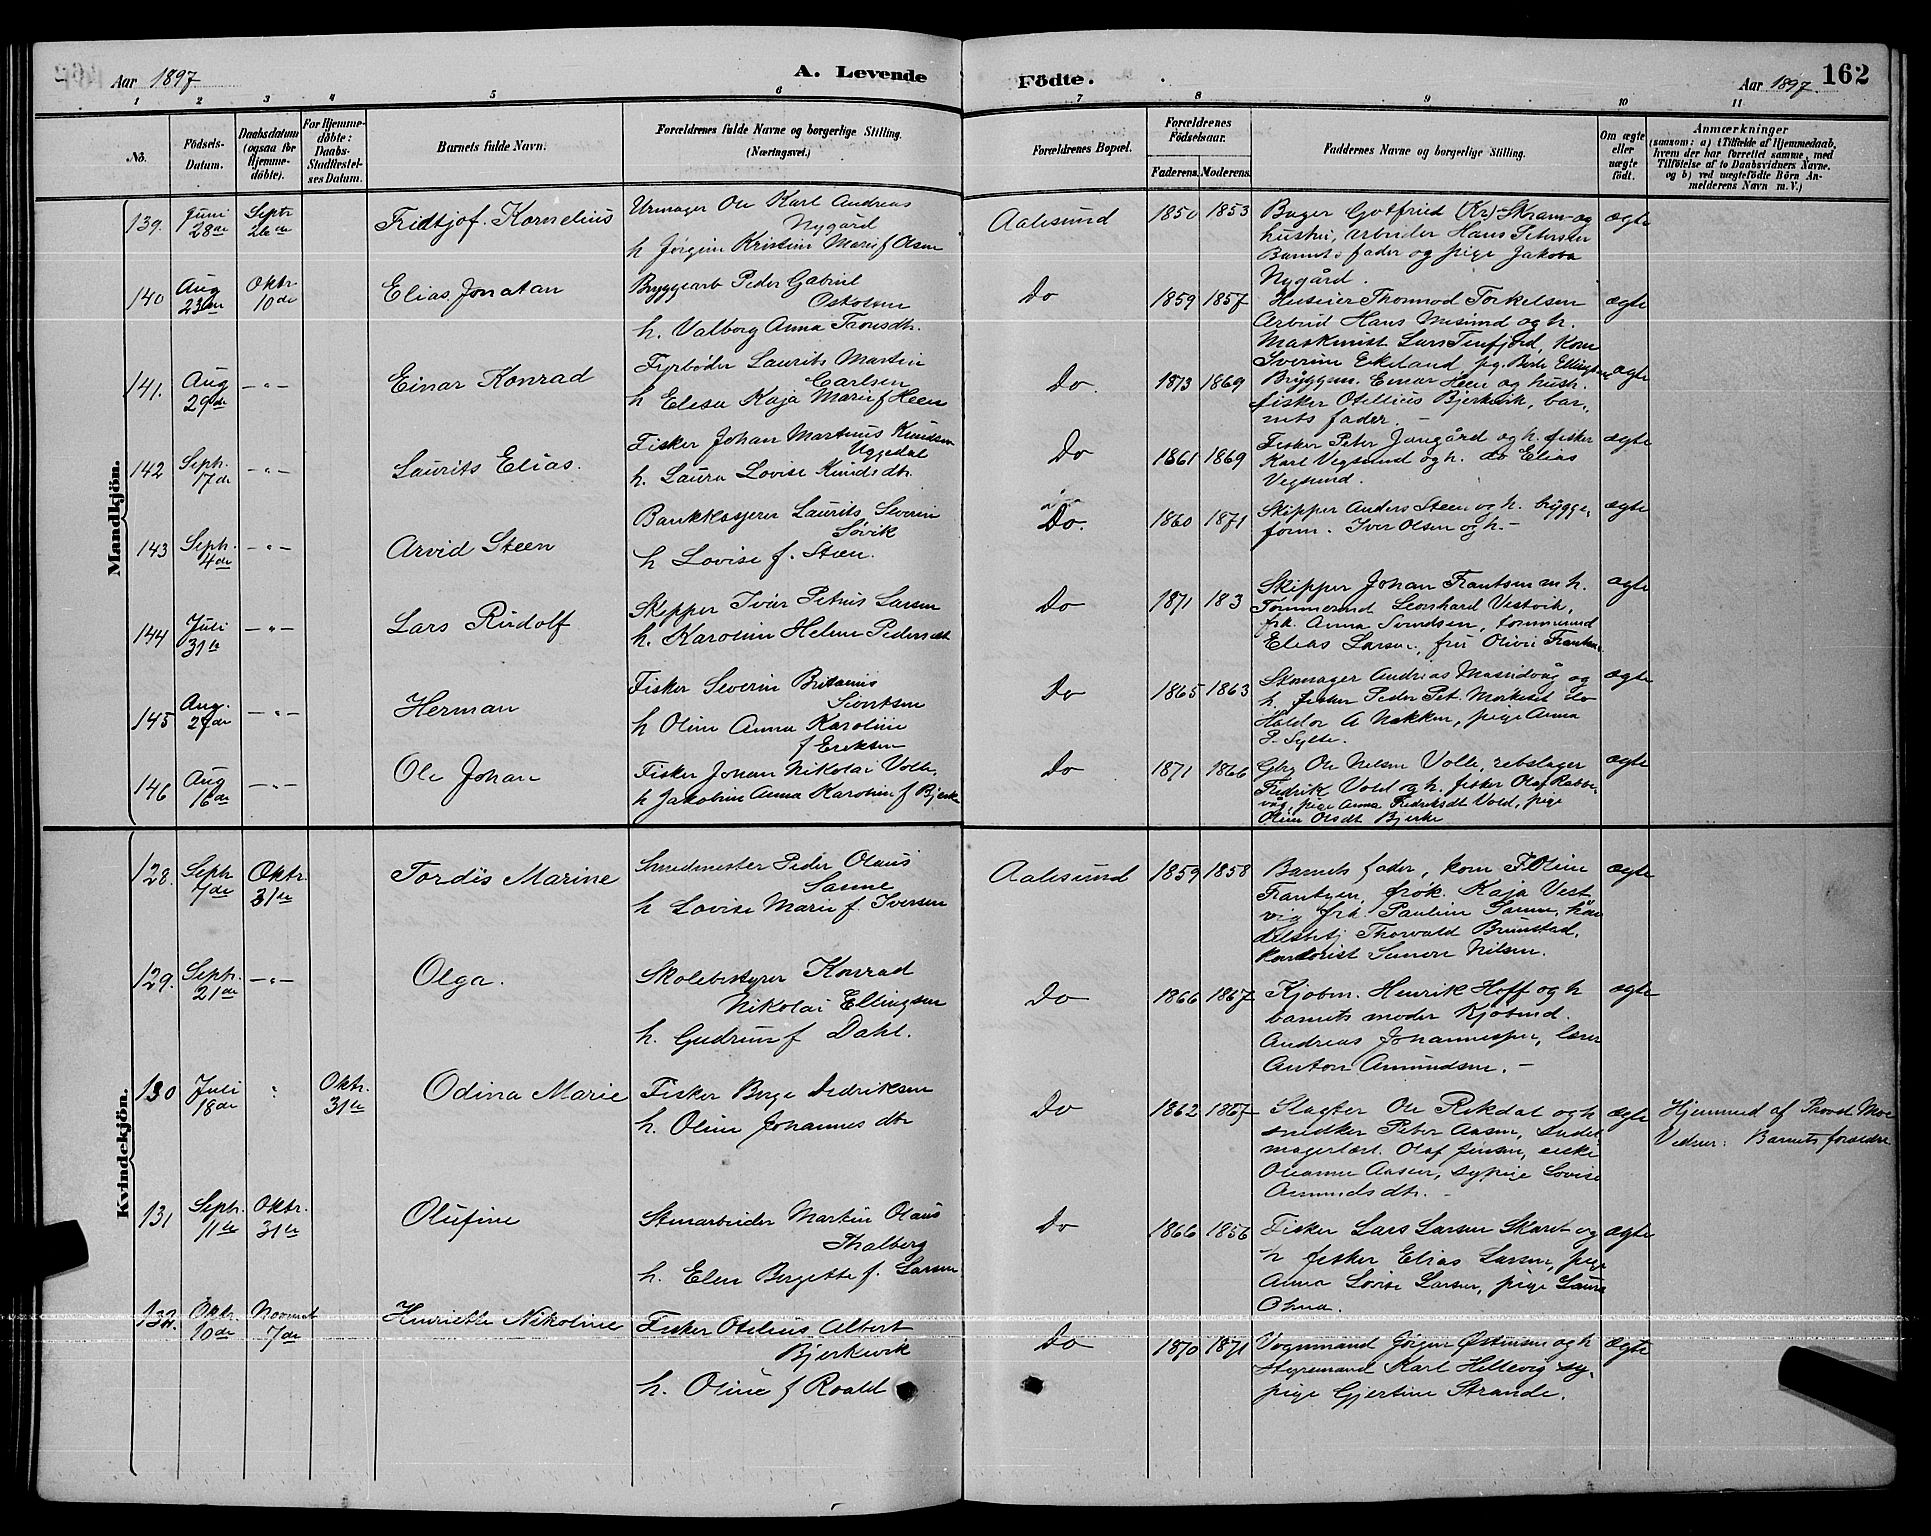 Aar 1897
A. Levende
Födte.
Aar 1897.
162
1 2 3 4 5 6 7 8 9 10 11
No.
Födsels-Datum.
Daabsdatum (ogsaa for Hjemme-döbte).
For Hjemme-döbte: Daabs-Stadfæstel-ses Datum.
Barnets fulde Navn.
Forældrenes fulde Navne og borgerlige Stilling.
(Næringsvei.)
Forældrenes Bopæl.
Forældrenes Födselsaar.
Faderens. Moderens.
Faddernes Navne og borgerlige Stilling.
Om ægte eller uægte födt.
Anmærkninger
(saasom: a) i Tilfælde af Hjemmedaab,
hvem der har forrettet samme, med
Tilföielse af to Daabsvidners Navne,
og b) ved uægtefödte Börn An-
melderens Navn m. V.)
Mandkjön.
139. Juni 28de Septr 26de Fridtjof Kornelius
Urmager Ole Karl Andreas
Nygård
h Jørgine Kristine Marie f Olsen
Aalesund 1850 1853
Bager Gotfried (Kr) Skram og
hustru, arbeider Hans Petersen
Barnets fader og pige Jakoba
Nygård.
ægte
140 Aug 23de Oktr 10de Elias Jonatan
Bryggearb Peder Gabriel
h. Valborg Anna Tronsdtr.
Do 1859 1857
Huseier Thormod Torkelsen
Arbeid Hans Misund og h.
Maskinist Lars Tenfjord, kone
ægte
141. Aug 29de -"- Einar Konrad
Fyrbøder Laurits Martin
Carlsen
h Elesa Kaja Marie f Heen
Do. 1873 1869
Severine Eikeland, pg. Berte Ellingsen
Bryggem. Einar Heen og hush.
fisker Otellius Bjerkevik, bar-
nets fader. -
ægte
142 Septr. 17de -"- Laurits Elias.
Fisker Johan Martinus Knudsen
Uggedal
h. Laura Lovise Knudsdtr.
Do 1861 1869
Fisker Peter Jangård og h. fisker
Karl Vegsund og h. do Elias
Vegsund.
ægte
143 Septr. 4de -"- Arvid Steen
Bankkasserer Laurits Severin
Søvik
h Lovise f. Steen.
Do. 1860 1871
Skipper Anders Steen og h. brygge-
form. Iver Olsen og h. -
ægte
144 Juli 31te -"- Lars Rudolf
Skipper Ivar Petrus Larsen
h. Karoline Helene Pedersdtr
Do 1871 183
Skipper Johan Frantsen m h.
Tømmermd Leonhard Vestvik,
frk. Anna Svendsen, tømmermd
Elias Larsen, fru Olivie Frantsen.
ægte
145 Aug. 27de -"- Herman
Fisker Severin Britanus
Sivertsen
h Oline Anna Karoline
f Eriksen
Do 1865 1863
Stenager Andreas Masindvåg og
h. fisker Peder Pet. Morkeset do
Haldor A Nakken, pige Anna
P. Sylte.
ægte
146 Aug 16de -"- Ole Johan
Fisker Johan Nikolai Volle.
h Jakobine Anna Karoline f Bjerke
Do 1871 1866
Gbr Ole Nilsen Volle, rebslager
Fredrik Vold og h. fisker Olaf Rabbe-
våg, pige Anna Fredriksdt Vold, pige
Oline Olsdt Bjerke
ægte
Kvindekjön.
128. Septr 7de Oktr. 31te Tordis Marine
Smedmester Peder Olaus
Sanne
h Lovise Marie f. Iversen
Aalesund 1859 1858
Barnets fader, kone F Oline
Frantzen, frøk. Kaja Vest
vig frk. Pauline Sanne, han
delsbetj Thorvald Brunstad,
kontorist Simon Nilsen.
ægte
129. Septr. 21de -"- Olga.
Skolebestyrer Konrad
Nikolai Ellingsen
h. Gudrun f Dahl.
Do 1866 1867
Kjøbm. Henrik Hoff og h
barnets moder Kjøbmd.
Andreas Johannessen, lærer
Anton Amundsen. -
ægte
130 Juli 18de " Oktr. 31te Odina Marie
Fisker Berge Dedriksen
h. Oline Johannesdtr
Do 1862 1867
Slagter Ole Rekdal og h
snedker Peter Aasen, sadel-
magerlærl. Olaf Jensen, enke
Oleanna Aasen, sypige Lovise
Amundsdtr. -
ægte
Hjemmed af Provst Moe
Vidner: Barnets forældre
131 Septr. 11te Oktr. 31te Olufine
Stenarbeider Martin Olaus
Thalberg
h. Elen Bergette f. Larsen
Do 1866 1856
Fisker Lars Larsen Skaret og
h fisker Elias Larsen, pige
Anna Lovise Larsen, pige Laura
ægte
132. Oktr. 10de Novembr 7de Henriette Nikoline
Fisker Otelius Albert
Bjerkevik
h. Oline f Roald
Do 1870 1871
Vognmand Jörgen Østensen og h
styremand Karl Hellevig sy-
pige Gjertine Strande.
ægte